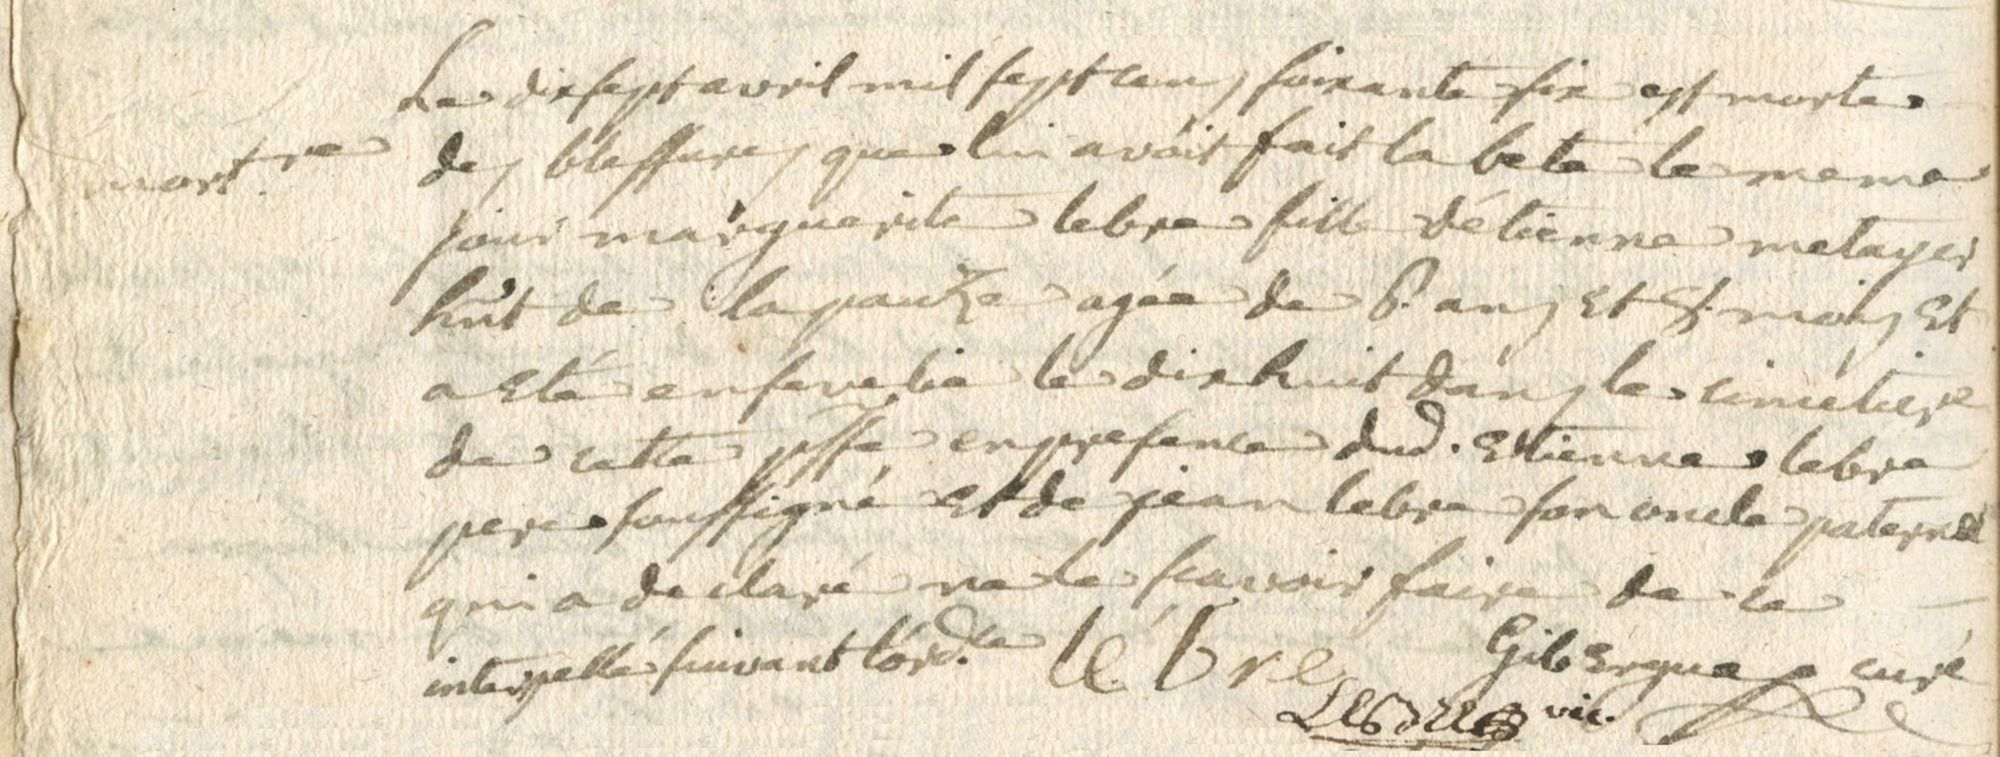 mort.re
Le dixsept avril mil sept cens soixante six est morte
des blessures que lui avoit fait la bete le meme
jour marguerite lebre fille détienne metayer
hût de lapauze agée de 8. ans et 8. mois et
a eté ensevelie le dixhuit dans le cimetiere
de cette psse en presence dud. Etienne lebre
pere soussigné et de jean lebre son oncle paternel
qui a declaré ne le sçavoir faire de ce
interpellé suivant lord.ce le bre Gibergue curé
vic.